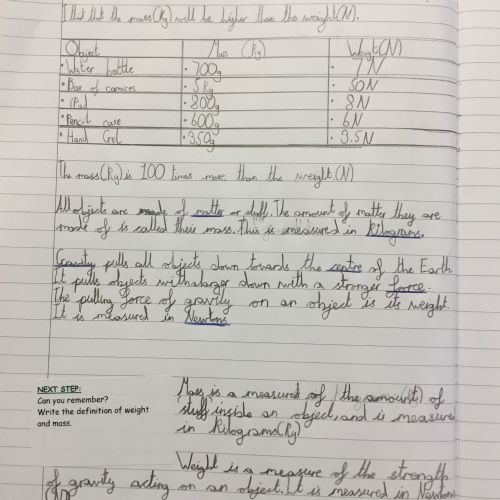 I that that the mass(Kg) will be higher than the weight(N).
Object Mass (Kg) Weight(N)
• Water bottle • 700g • 7N
• Box of comics • 5Kg • 50N
• IPad • 800g • 8N
• Pencil case • 600g • 6N
• Hand Gel • 350g • 3.5N
The mass(Kg) is 100 times more than the weight.(N)
All objects are made of matter or stuff. The amount of matter they are
made of is called their mass. This is measured in kilograms.
Gravity pulls all objects down towards the centre of the Earth.
It pulls objects with a larger down with a stronger force.
The pulling force of gravity on an object is its weight.
It is measured in Newtons
NEXT STEP:
Can you remember?
Write the definition of weight
and mass.
Mass is a measured of (the amount) of
stuff inside an object, and is measure
in Kilograms(Kg)
Weight is a measure of the strength
of gravity acting on an object. It is measured in Newtons